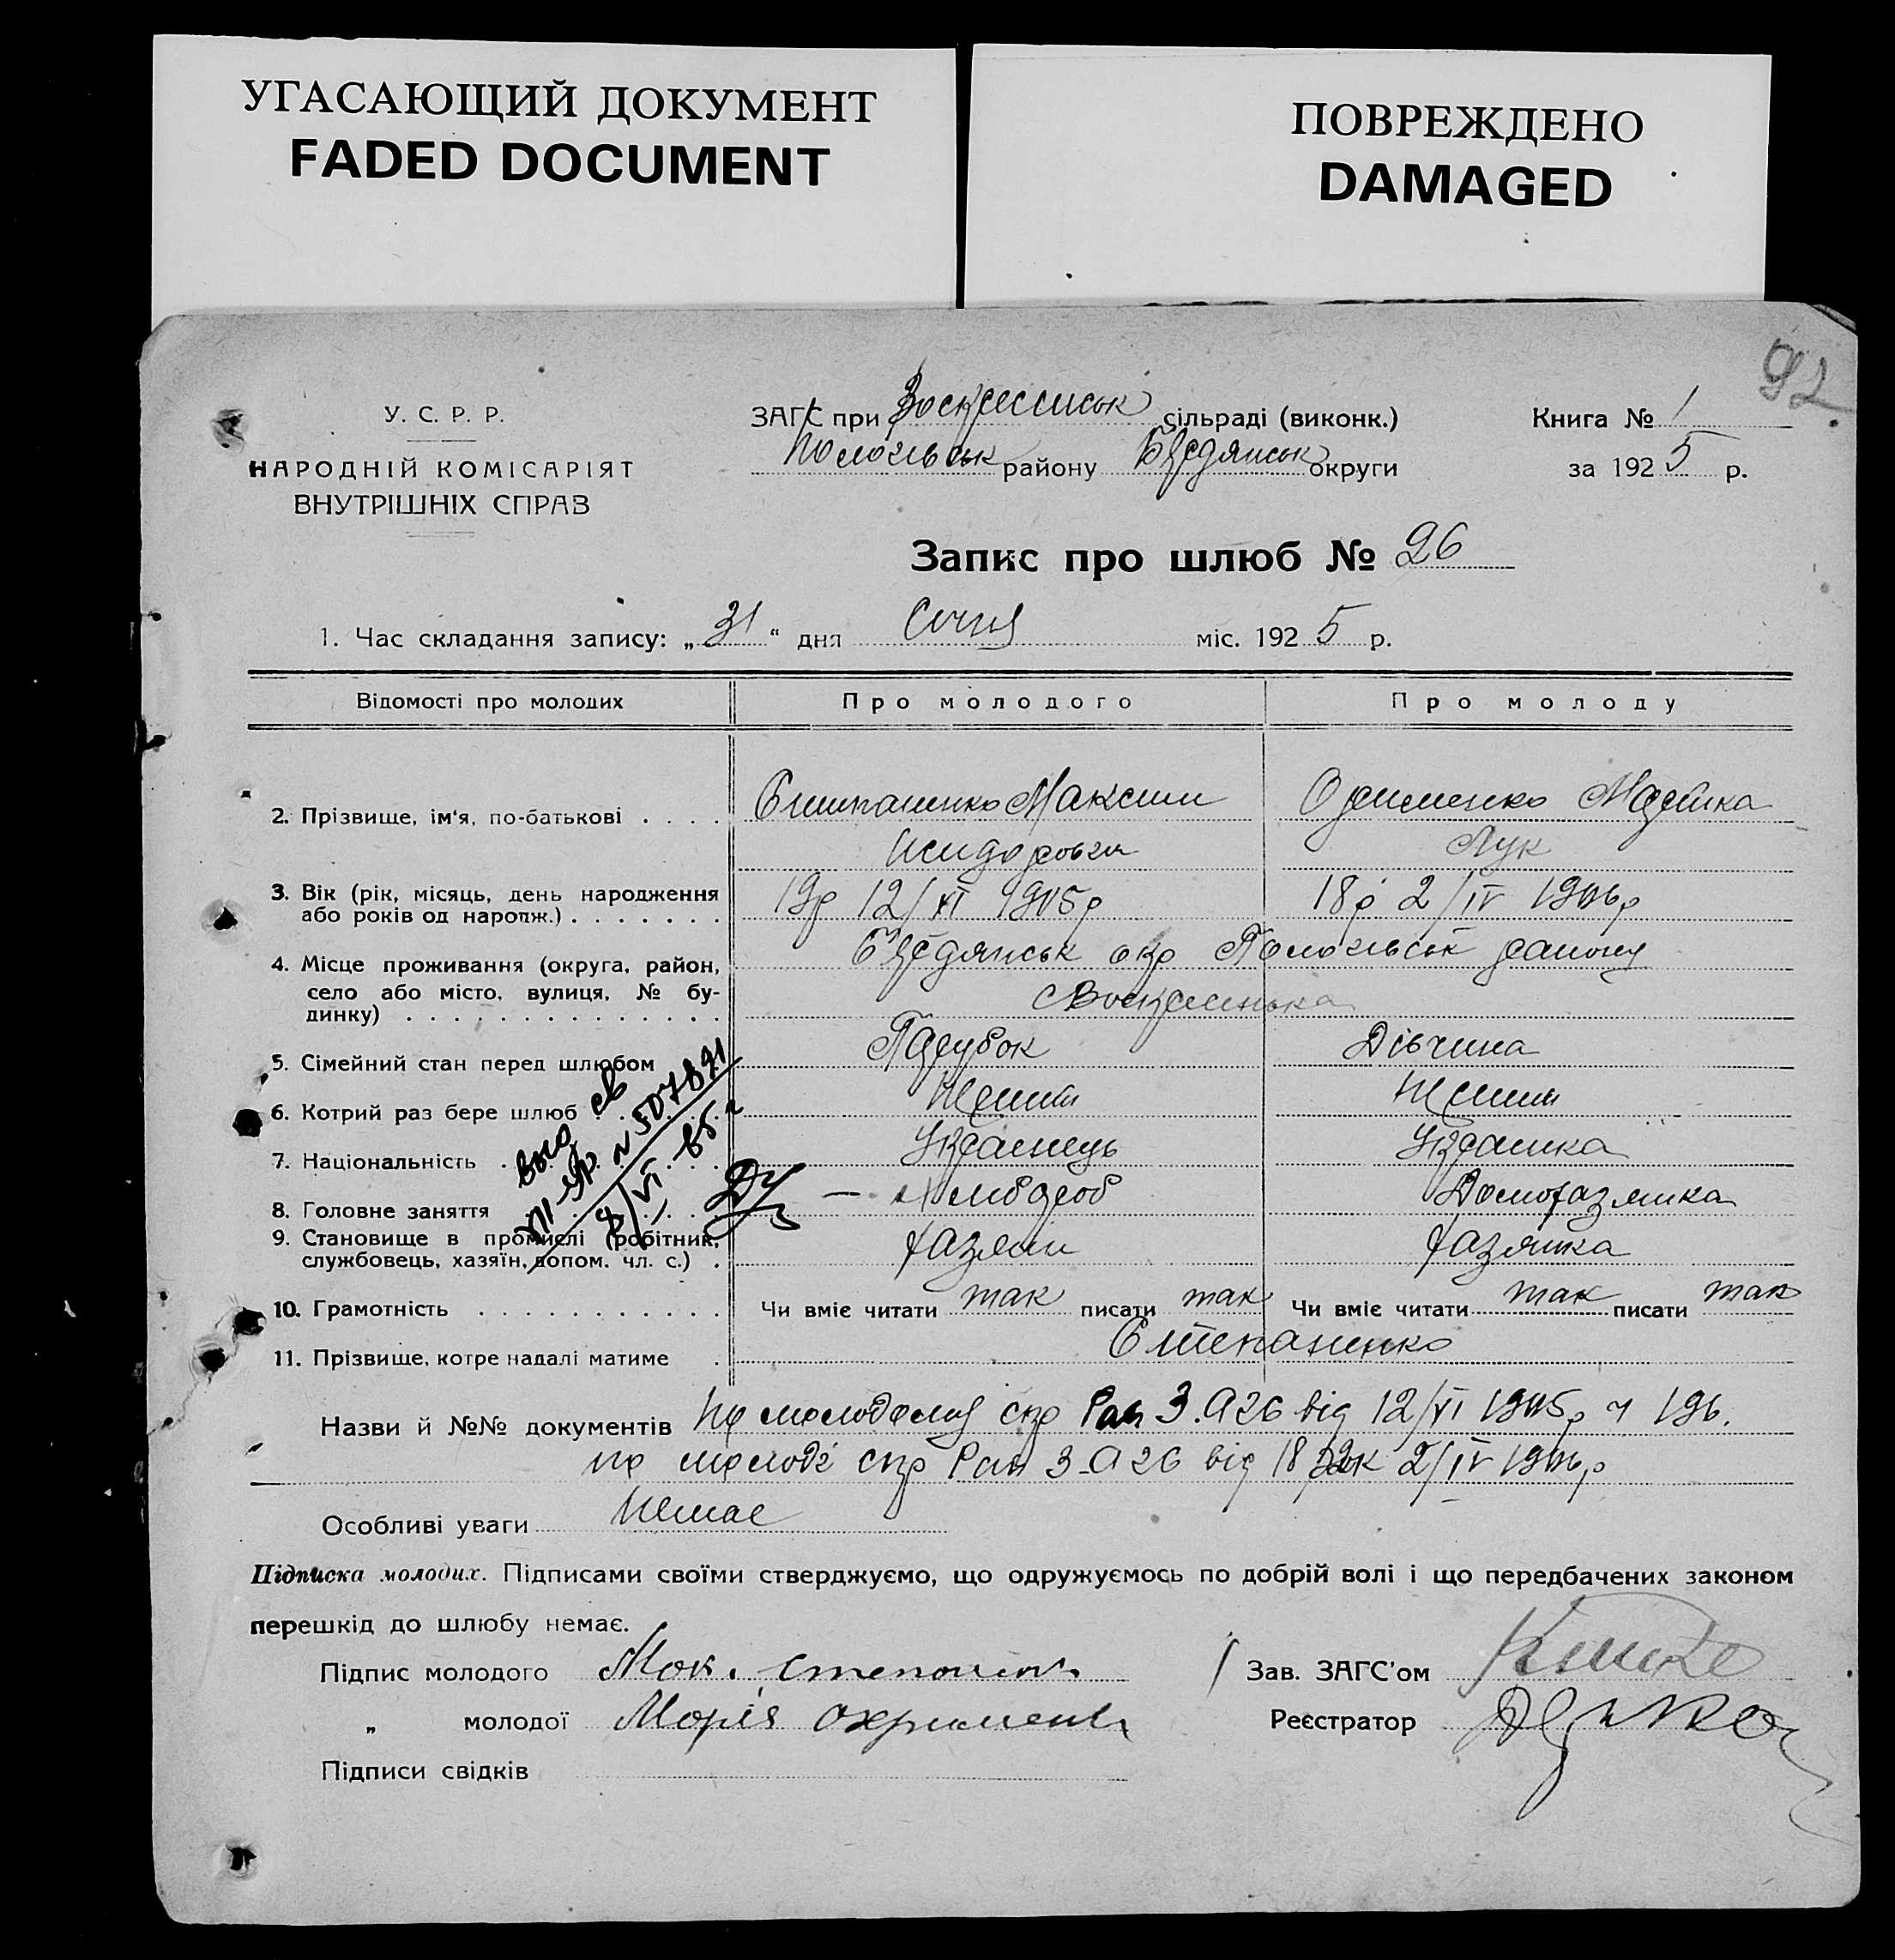 УГАСАЮЩИЙ ДОКУМЕНТ
FADED DOCUMENT
ПОВРЕЖДЕНО
DAMAGED
92
У. С. Р. Р.
НАРОДНІЙ КОМІСАРІЯТ
ВНУТРІШНІХ СПРАВ
ЗАГС при Воскресенськ сільраді (виконк.)
Пологівськ району Бердянськ округи
Книга № 1
за 1925 р.
Запис про шлюб № 26
1. Час складання запису: „31“ дня Січня міс. 1925 р.
Відомості про молодих Про молодого Про молоду
2. Прізвище, ім'я, по-батькові . . . . Степаненко Максим Охрименко
Исидорович Лук
3. Вік (рік, місяць, день народження
або років од нарож.) . . . . . . . 19р 12/VI 1905р 18р 2/IV 1906р
4. Місце проживання (округа, район, Бердянськ окр Пологівськ району
село або місто, вулиця, № бу-
динку) . . . . . . . . . . . . . . с Воскресенька
5. Сімейний стан перед шлюбом Парубок Дівчина
6. Котрий раз бере шлюб Перший Перший
7. Національність Українець Українка
8. Головне заняття — Хлібороб Домохазяйка
9. Становище в промислі (робітник,
службовець, хазяїн, допом. чл. с.) . хазяїн хазяйка
выд св
№ 507891
8/VI-65 г
10. Грамотність . . . . . . . . . . . Чи вміє читати так писати так Чи вміє читати так писати так
11. Прізвище, котре надалі матиме . Степаненко
Назви й №№ документів По молодому 3.А26 від 12/VI 1905р ч 196.
по молоді 3-А26 від 18 2/IV 1906р
Особливі уваги Немає
Підписка молодих. Підписами своїми стверджуємо, що одружуємось по добрій волі і що передбачених законом
перешкід до шлюбу немає.
Підпис молодого Мак. Степаненко
„ молодої Марія Охрименко
Підписи свідків
Зав. ЗАГС'ом
Реєстратор